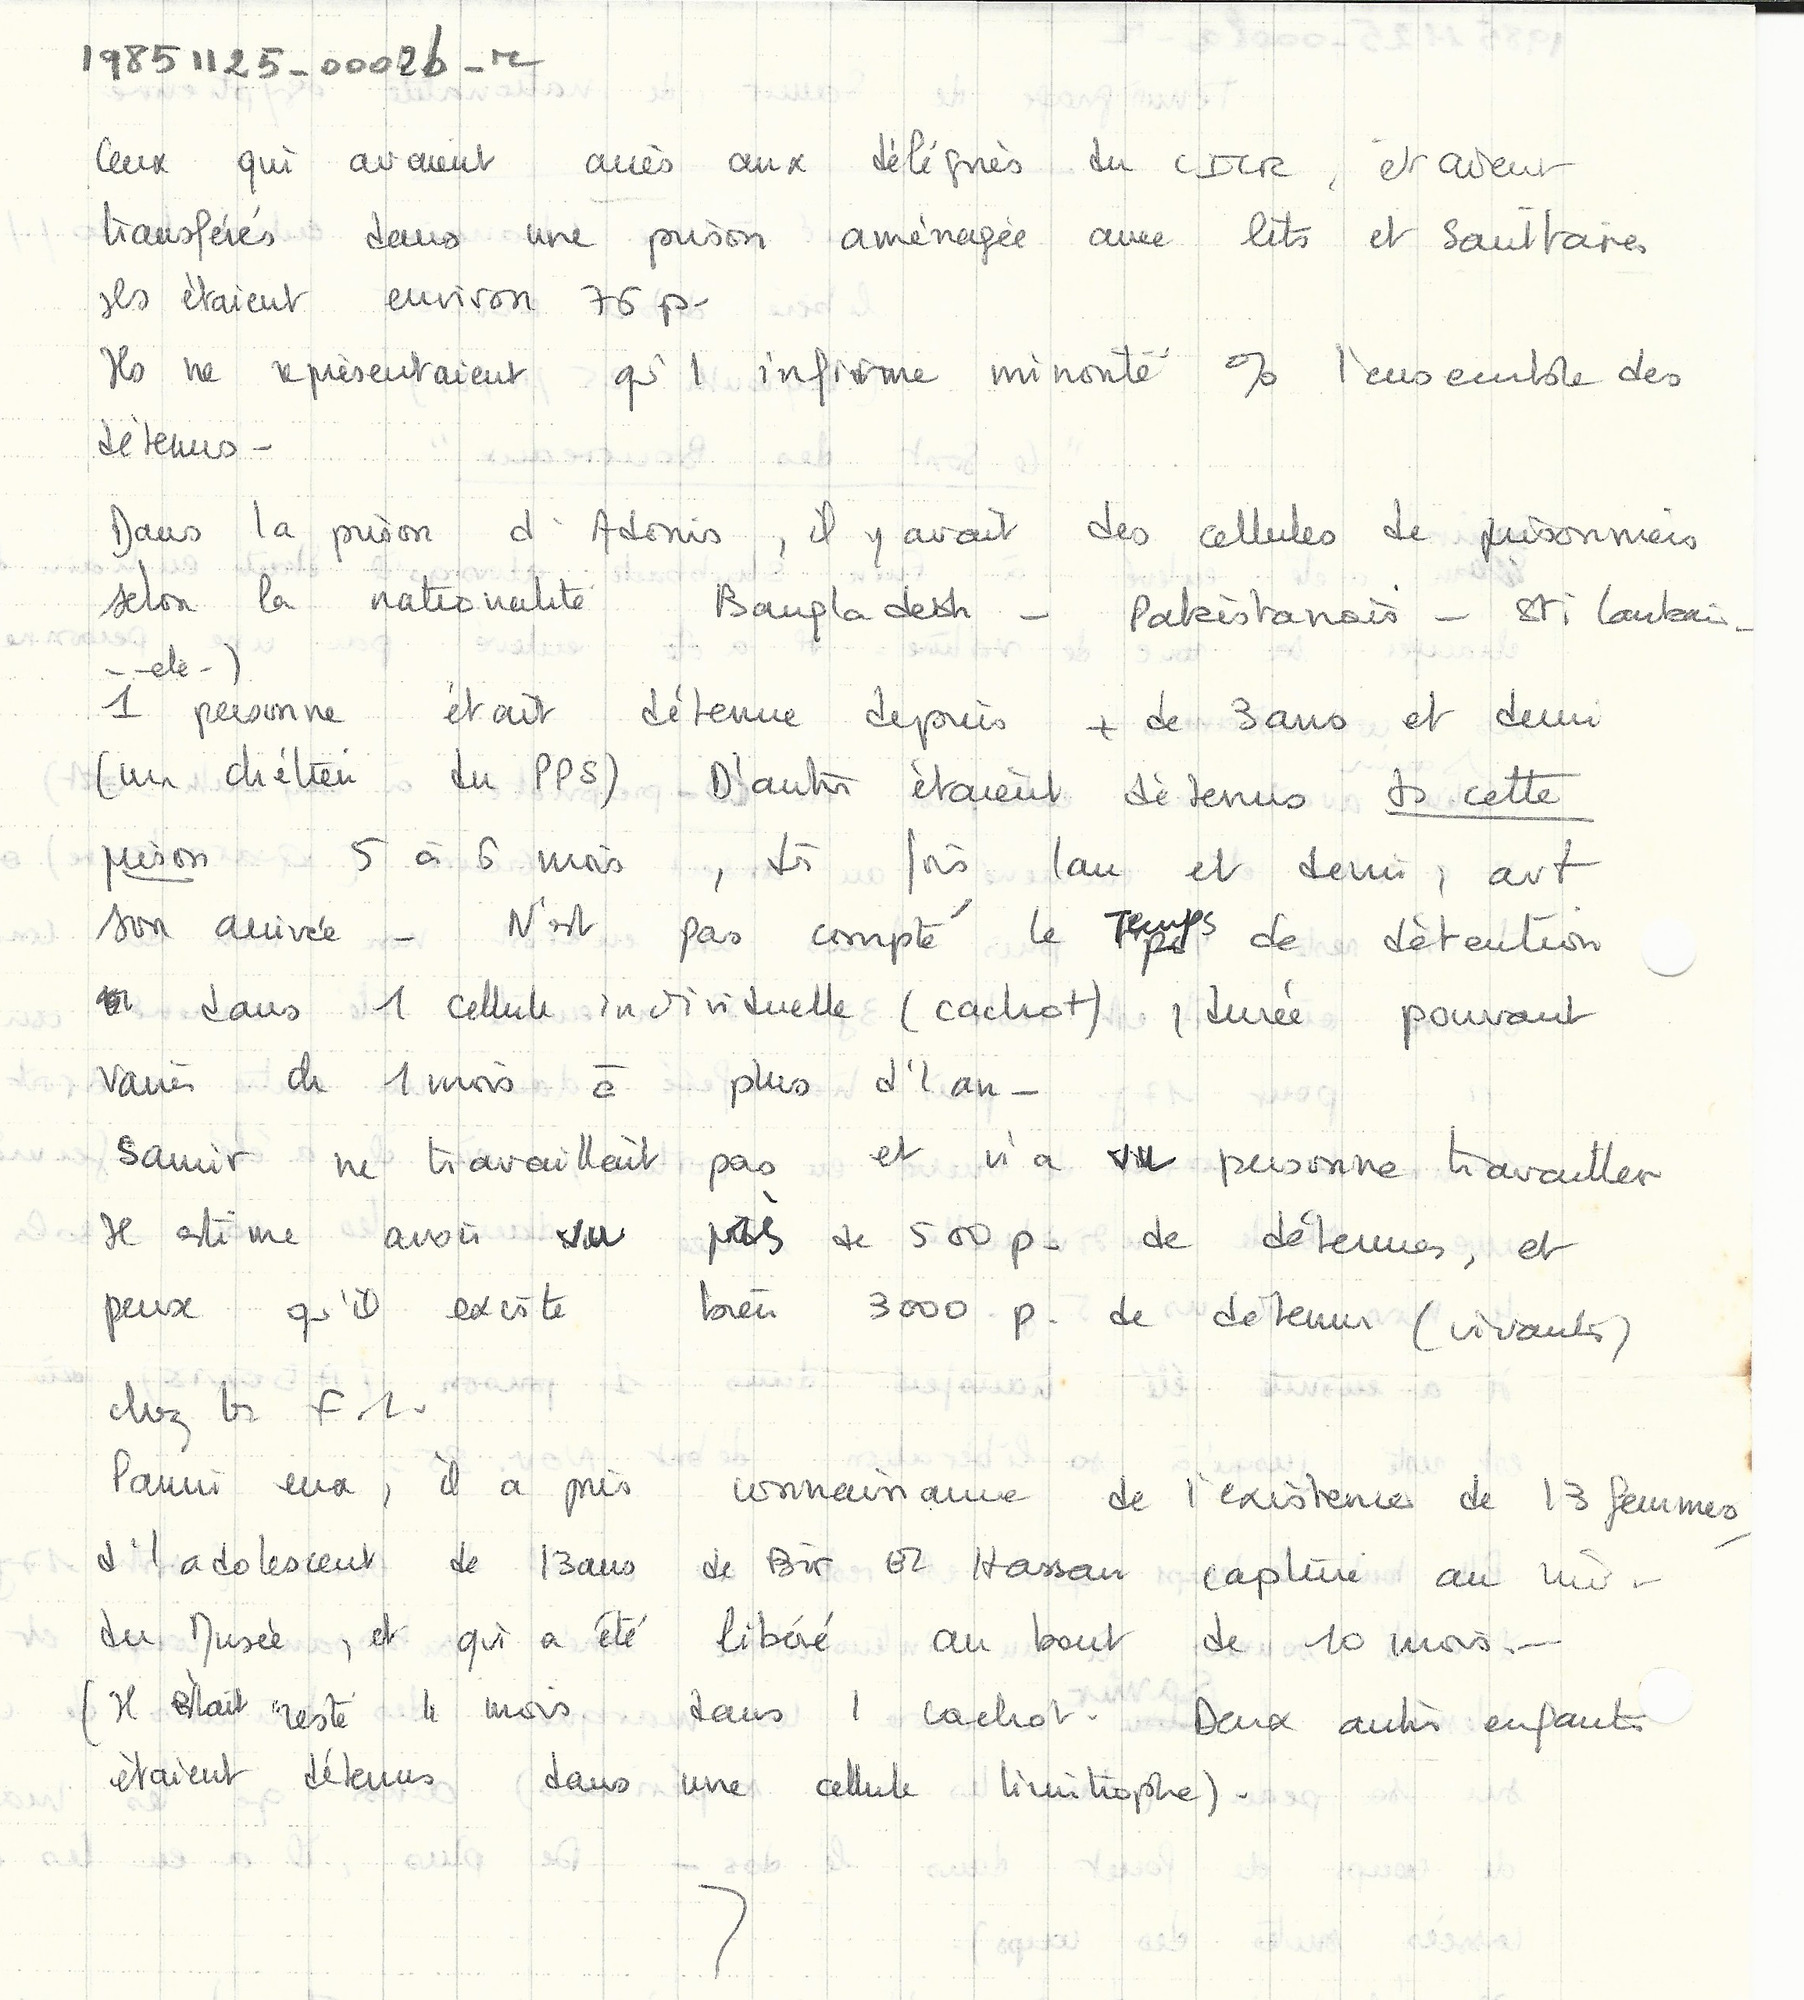 19851125-0002b-r
Ceux qui avaient accès aux délégués du CICR, étaient
transférés dans une prison aménagée avec lits et Sanitaires
Ils étaient environ 76 p.
Ils ne représentaient qu'1 infirme minorité % l'ensemble des
détenus -
Dans la prison d'Adonis, il y avait des cellules de prisonniers
selon la nationalité Bangladesh - Pakistanais - Sri Lankais -
- - etc - )
1 personne était détenue depuis + de 3 ans et demi
(un chrétien du PPS) D'autres étaient détenus ds cette
prison 5 à 6 mois, des fois 1 an et demi, avt
son arrivée - N'est pas compté le Temps de détention
dans 1 cellule individuelle (cachot), durée pouvant
varier de 1 mois à plus d'1 an -
Samir ne travaillait pas et n'a vu personne travailler
Il estime avoir vu près de 500 p. de détenus, et
peux qu'il existe bien 3000 p. de détenus (vivants)
chez les F.L.
Parmi eux, il a pris connaissance de l'existence de 13 femmes,
d'1 adolescent de 13 ans de Bir El Hassan capturé au
du Musée, et qui a été libéré au bout de 10 mois. -
(Il était resté 4 mois dans 1 cachot. Deux autres enfants
étaient détenus dans une cellule limitrophe).